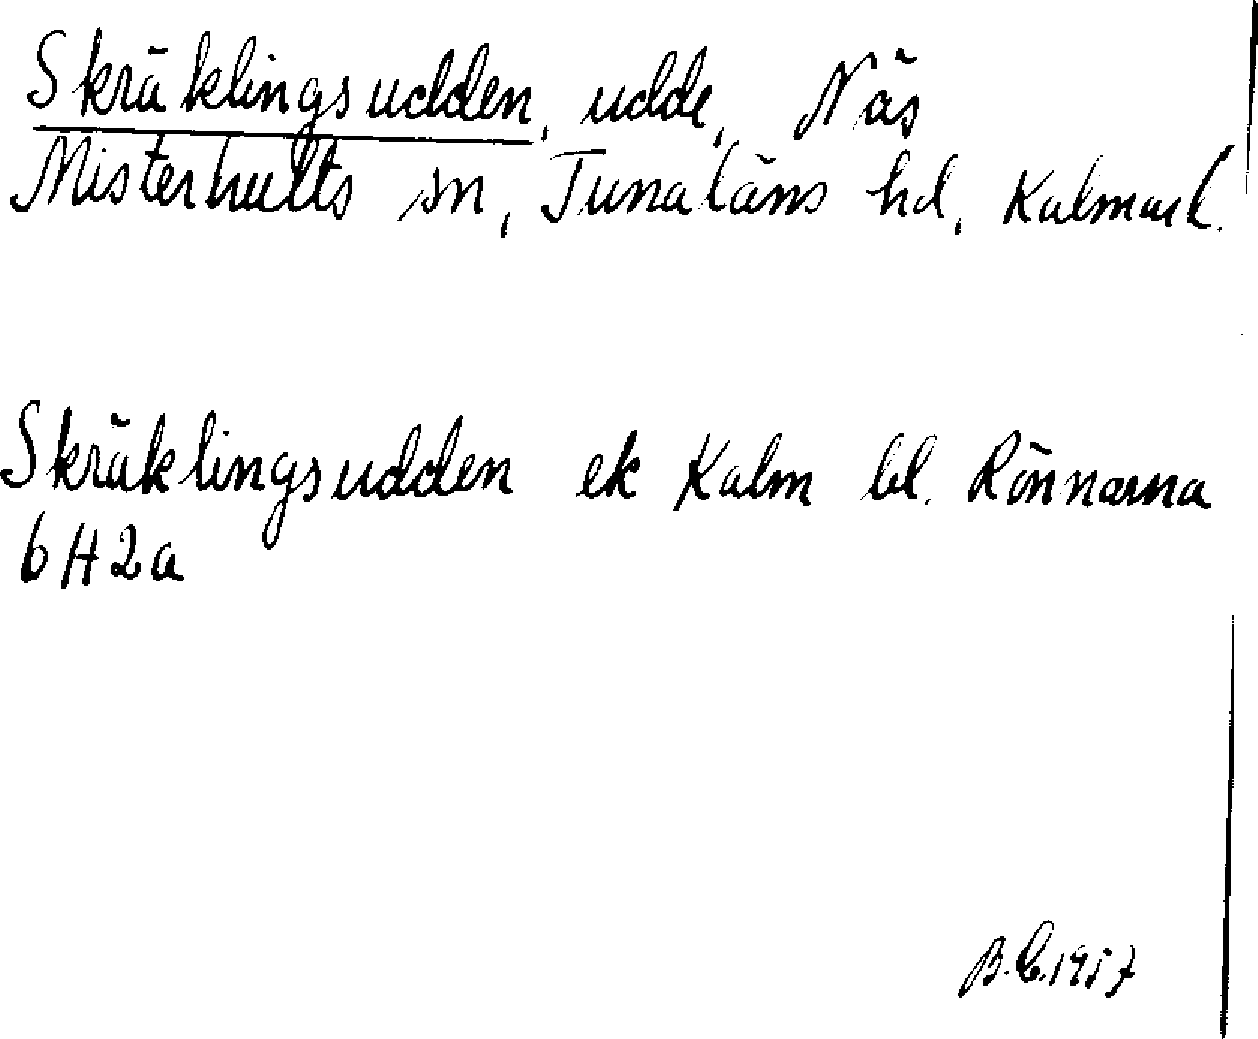 Skräklingsudden, udde, Näs
Misterhults sn, Tunaläns hd, Kalmar l.
Skräklingsudden ek Kalm bl. Rönnarna
6H2a
1957